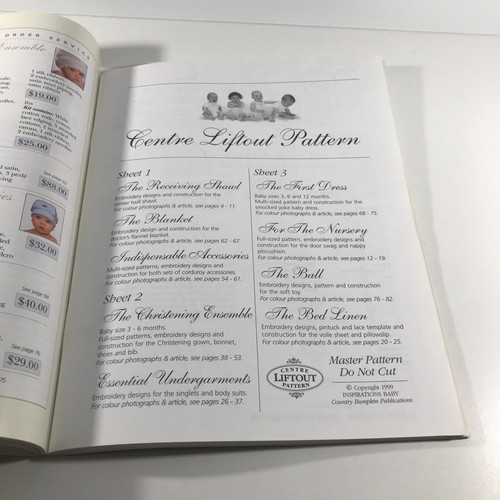 ORDER SERVICE
Ensemble
1 silk,
2 embroidery
satin piping,
satin ribbon
$19.00
Kit contains: White
cotton voile,
lace edging,
cotton,
2 embroidery needles.
$25.00
satin,
s. 3 perle
$88.00
$32.00
See page 58
$40.00
See page 76
$29.00
Centre Liftout Pattern
Sheet 1
The Receiving Shawl
Embroidery designs and construction for the
winter twill shawl
For colour photographs & article, see pages 4 - 11.
The Blanket
Embroidery design and construction for the
doctor's flannel blanket.
For colour photographs & article, see pages 62 - 67.
Indispensable Accessories
Multi-sized patterns, embroidery designs and
construction for both sets of corduroy accessories.
For colour photographs & article, see pages 54 - 61.
Sheet 2
The Christening Ensemble
Baby size 3 - 6 months.
Full-sized patterns, embroidery designs and
construction for the Christening gown, bonnet,
shoes and bib.
For colour photographs & article, see pages 38 - 53.
Essential Undergarments
Embroidery designs for the singlets and body suits.
For colour photographs & article, see pages 26 - 37.
Sheet 3
The First Dress
Baby sizes 3, 6 and 12 months.
Multi-sized pattern and construction for the
smocked yoke baby dress.
For colour photographs & article, see pages 68 - 75.
For The Nursery
Full-sized pattern, embroidery designs and
construction for the door swag and nappy
pincushion.
For colour photographs & article, see pages 12 - 19.
The Ball
Embroidery designs, pattern and construction
for the soft toy.
For colour photographs & article, see pages 76 - 82.
The Bed Linen
Embroidery designs, pintuck and lace template and
construction for the voile sheet and pillowslip.
For colour photographs & article, see pages 20 - 25.
CENTRE
LIFTOUT
PATTERN
Master Pattern
Do Not Cut
© Copyright 1999
INSPIRATIONS BABY
Country Bumpkin Publications